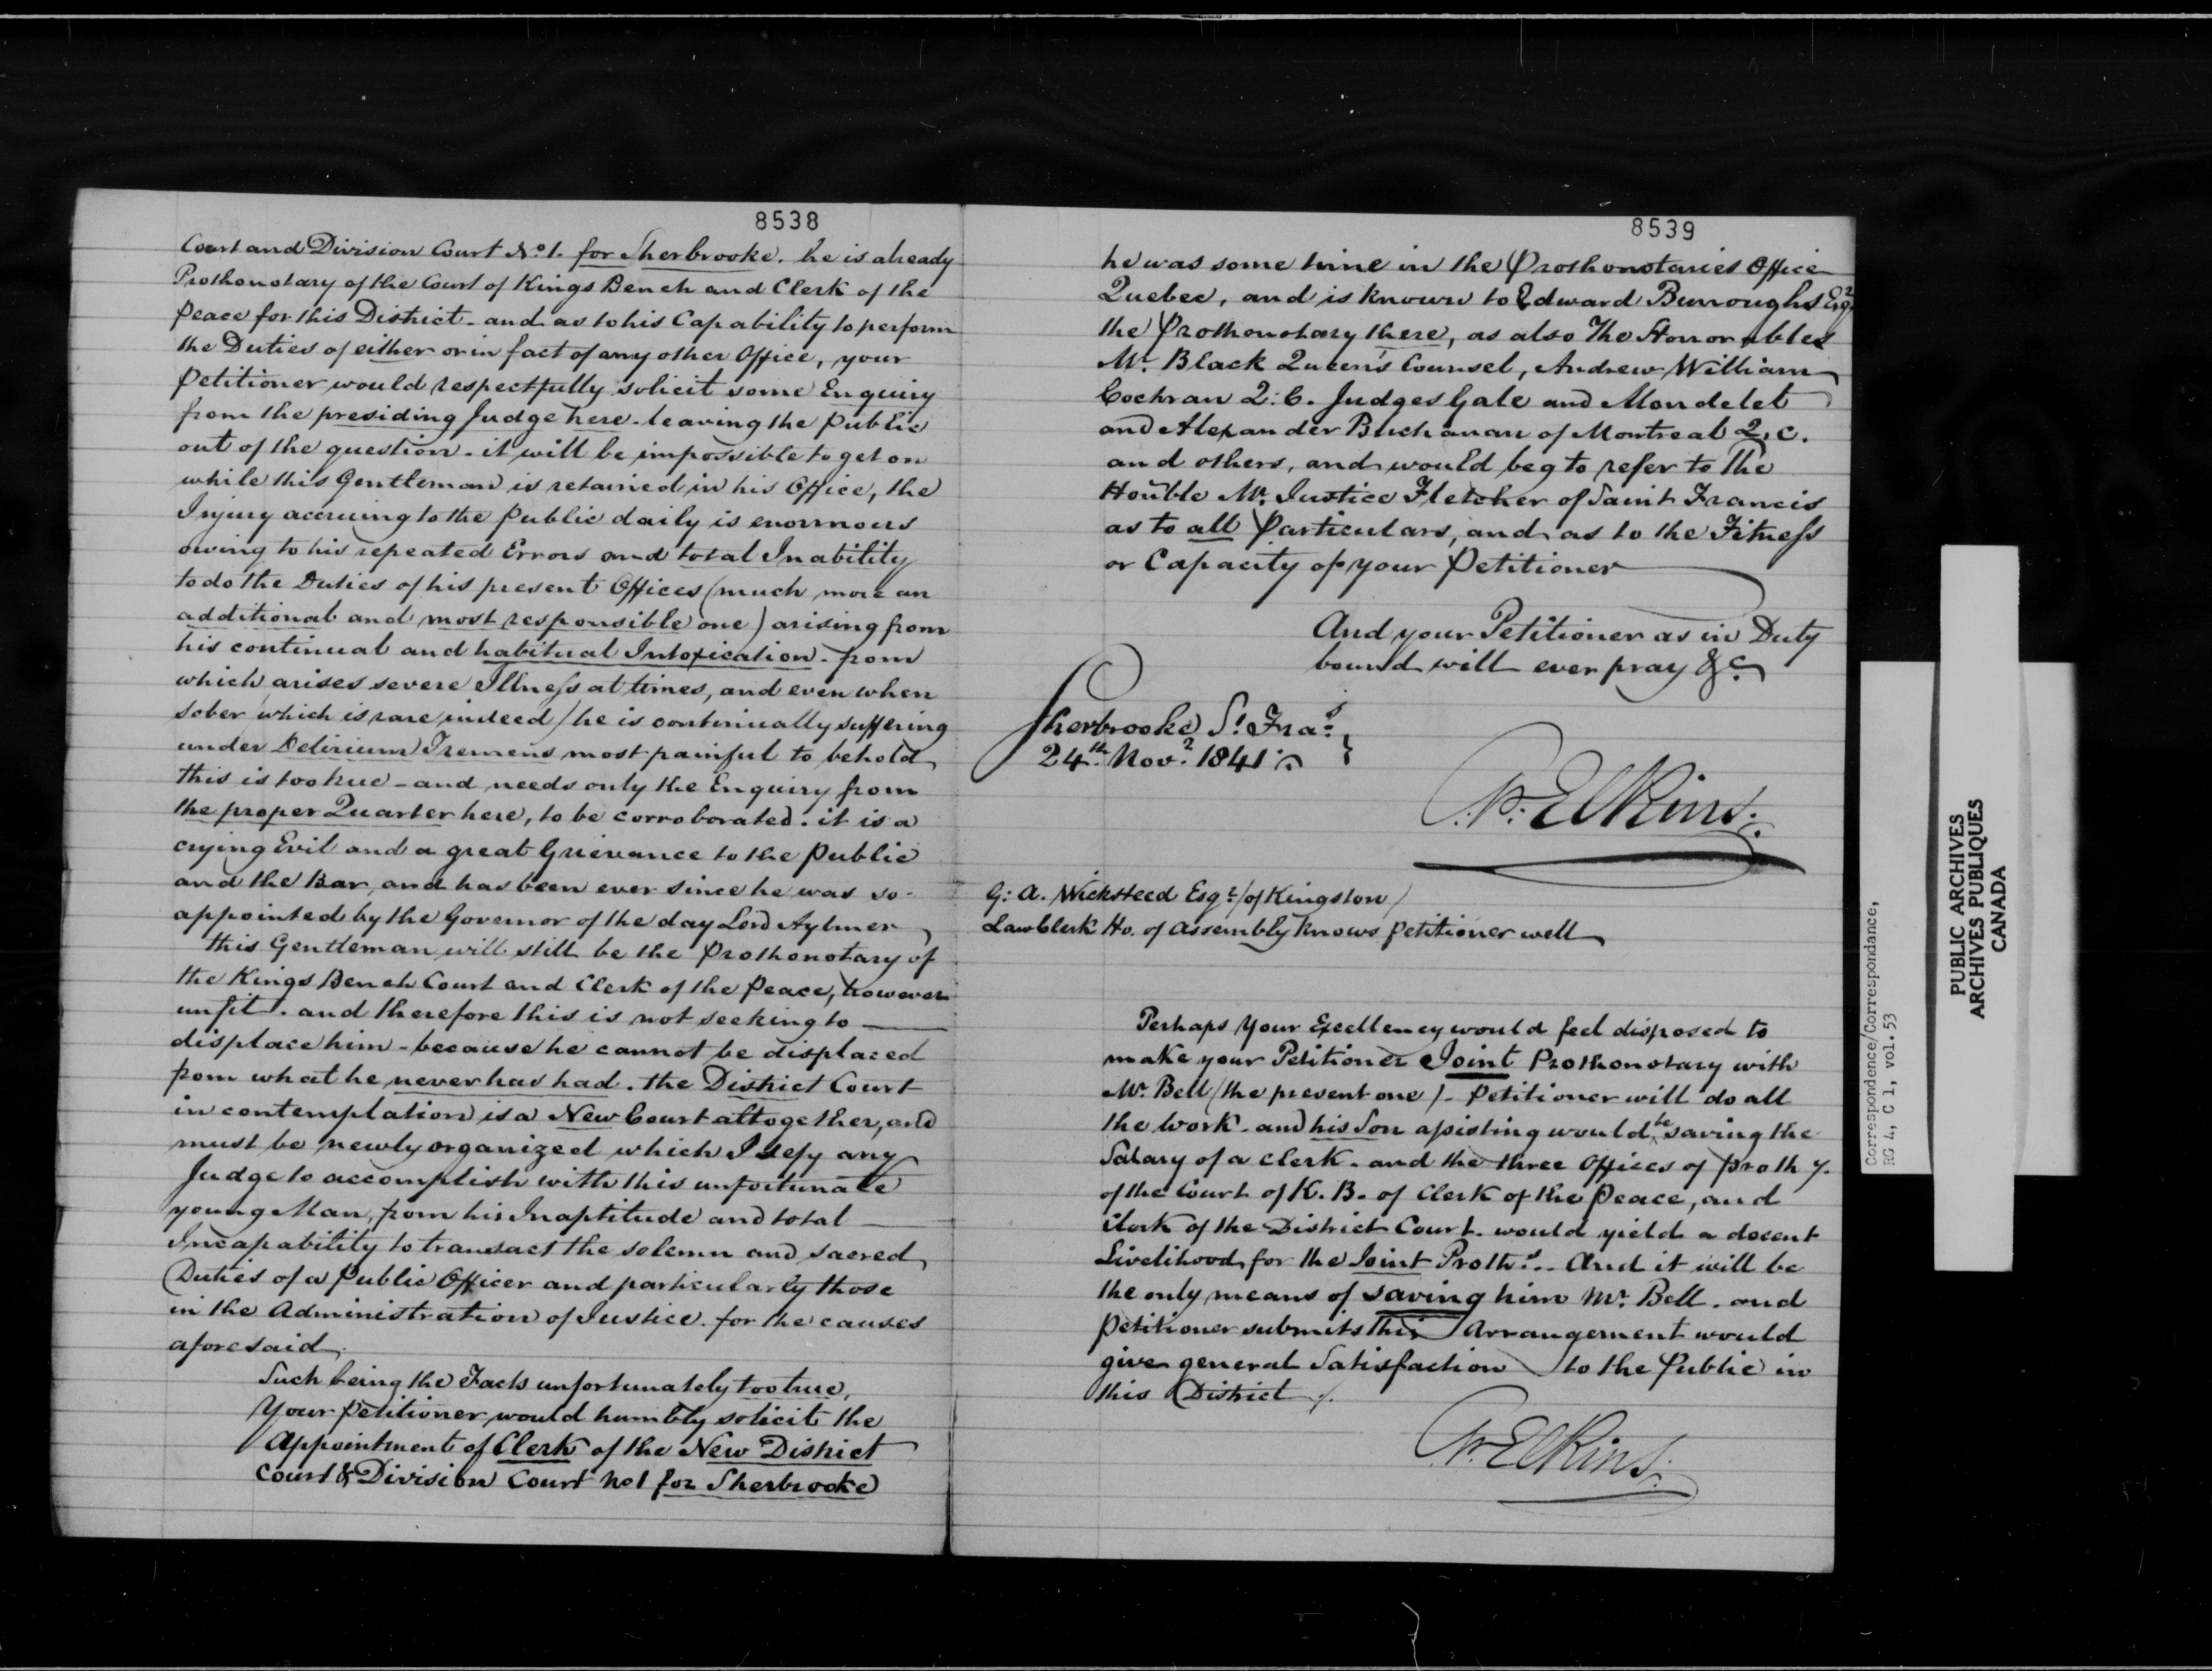 8538
Court and Division Court No. 1. for Sherbrooke. he is already
Prothonotary of the Court of Kings Bench and Clerk of the
Peace for this District - and as to his Capability to perform
the Duties of either or in fact of any other Office, your
Petitioner would respectfully solicit some Enquiry
from the presiding Judge here - leaving the Public
out of the question - it will be impossible to get on
while this Gentleman is retained in his Office, the
Injury accruing to the Public daily is enormous
owing to his repeated Errors and total Inability
to do the Duties of his present Offices (much more an
additional and most responsible one) arising from
his continual and habitual Intoxication - from
which arises severe Illness at times, and even when
sober (which is rare indeed) he is continually suffering
under Delirium Tremens most painful to behold
this is too true - and needs only the Enquiry from
the proper Quarter here, to be corroborated. it is a
crying Evil and a great Grievance to the Public
and the Bar, and has been ever since he was so
appointed by the Governor of the day Lord Aylmer
this Gentleman will still be the Prothonotary of
the Kings Bench Court and Clerk of the Peace, however
unfit. and therefore this is not seeking to
displace him - because he cannot be displaced
from what he never has had. the District Court
in contemplation is a New Court altogether, and
must be newly organized which I defy any
Judge to accomplish with this unfortunate
young Man, from his Inaptitude and total
Incapability to transact the solemn and sacred
Duties of a Public Officer and particularly those
in the Administration of Justice. for the causes
aforesaid.
Such being the Facts unfortunately too true,
Your Petitioner would humbly solicit the
Appointment of Clerk of the New District
Court & Division Court No 1 for Sherbrooke
8539
he was some time in the Prothonotaries Office
Quebec, and is known to Edward Burroughs Esqr
the Prothonotary there, as also The Honorables
Mr. Black Queen's Counsel, Andrew William
Cochran Q. C. Judges Gale and Mondelet
and Alexander Buchanan of Montreal Q. C.
and others, and would beg to refer to The
Honble Mr. Justice Fletcher of Saint Francis
as to all Particulars, and as to the Fitness
or Capacity of your Petitioner
And your Petitioner as in Duty
bound will ever pray &c.
Sherbrooke St. Fras. }
24th. Novr. 1841.
Elkins.
G. A. Wicksteed Esqr (of Kingston)
Law Clerk Ho. of Assembly knows Petitioner well
Perhaps Your Excellency would feel disposed to
make your Petitioner Joint Prothonotary with
Mr. Bell (the present one) - Petitioner will do all
the work - and his Son assisting would be saving the
Salary of a Clerk - and the three Offices of Prothy.
of the Court of K. B. of Clerk of the Peace, and
Clerk of the District Court. would yield a decent
Livelihood for the Joint Proths. - And it will be
the only means of saving him Mr. Bell. and
Petitioner submits this Arrangement would
give general Satisfaction to the Public in
this District.
Elkins.
Correspondence/Correspondance,
RG 4, C 1, vol. 53
PUBLIC ARCHIVES
ARCHIVES PUBLIQUES
CANADA